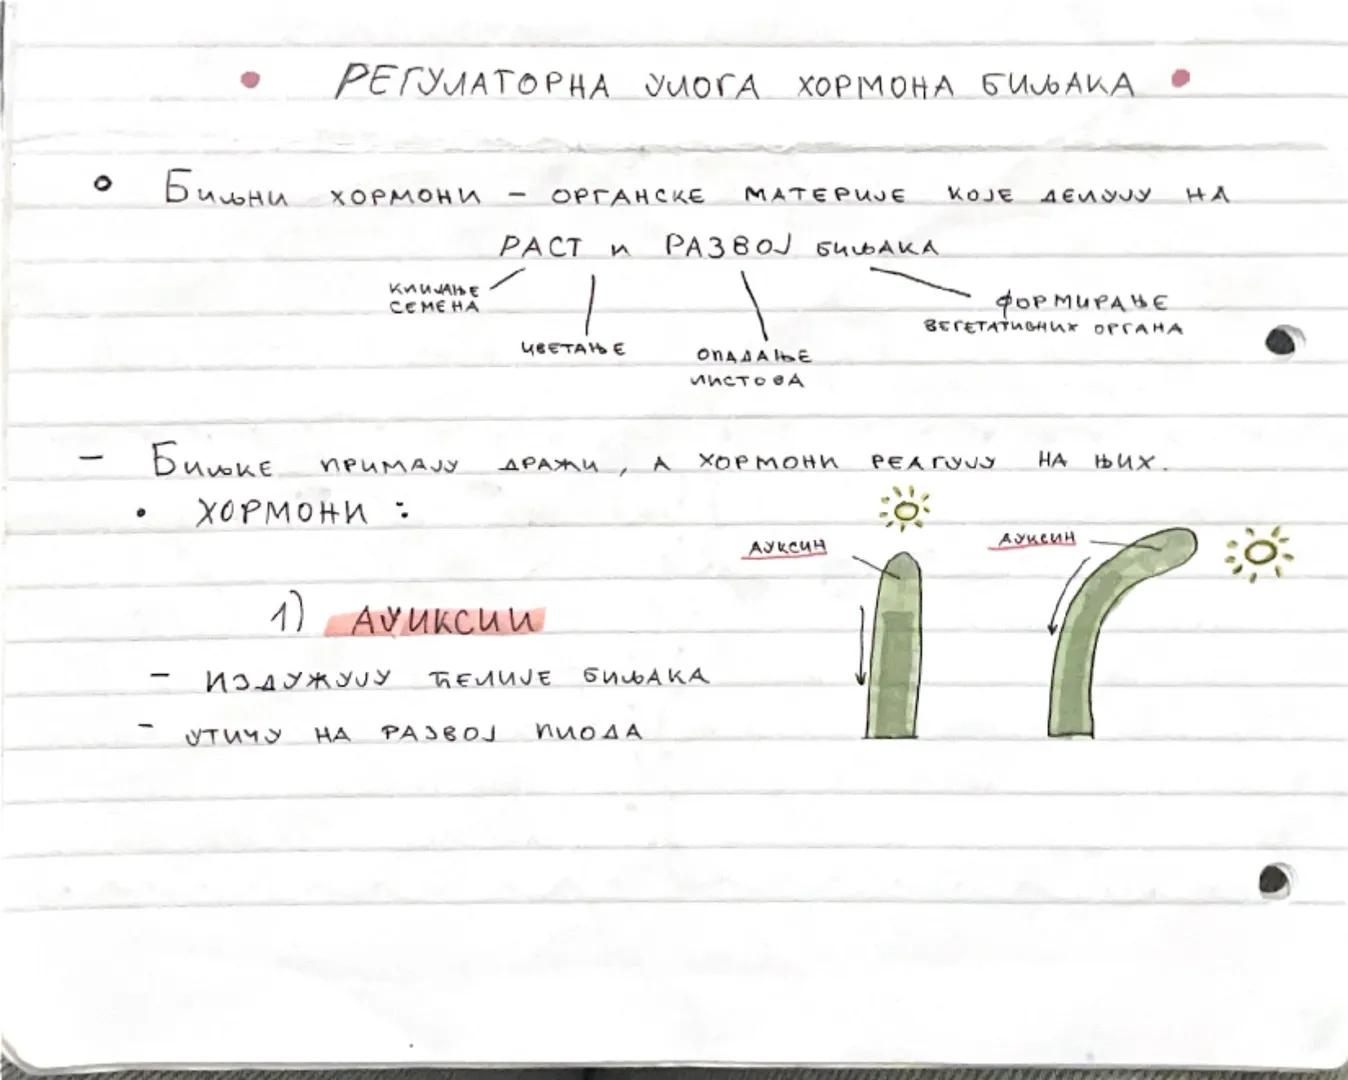 РЕГУЛАТОРНА УЛОГА ХОРМОНА БИЉАКА
Биљни хормони – органске материје које делују на
РАСТ и РАЗВОЈ биљака
клијање
семена
цветање
опадање
листова
формирање
вегетативних органа
– Биљке примају дражи, а хормони реагују на њих.
• ХОРМОНИ :
ауксин
ауксин
1) АУИКСИИ
– издужују ћелије биљака
– утичу на развој плода